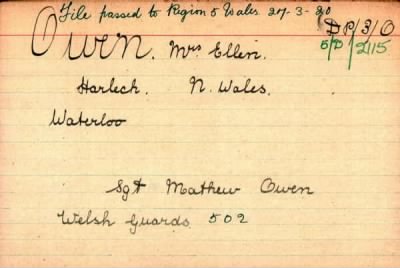 File passed to Region 5 Wales 27-3-30
D P/3/O
5/D/2115
Owen. Mrs Ellen.
Harlech. N. Wales.
Waterloo
Sgt Mathew Owen
Welsh Guards 502